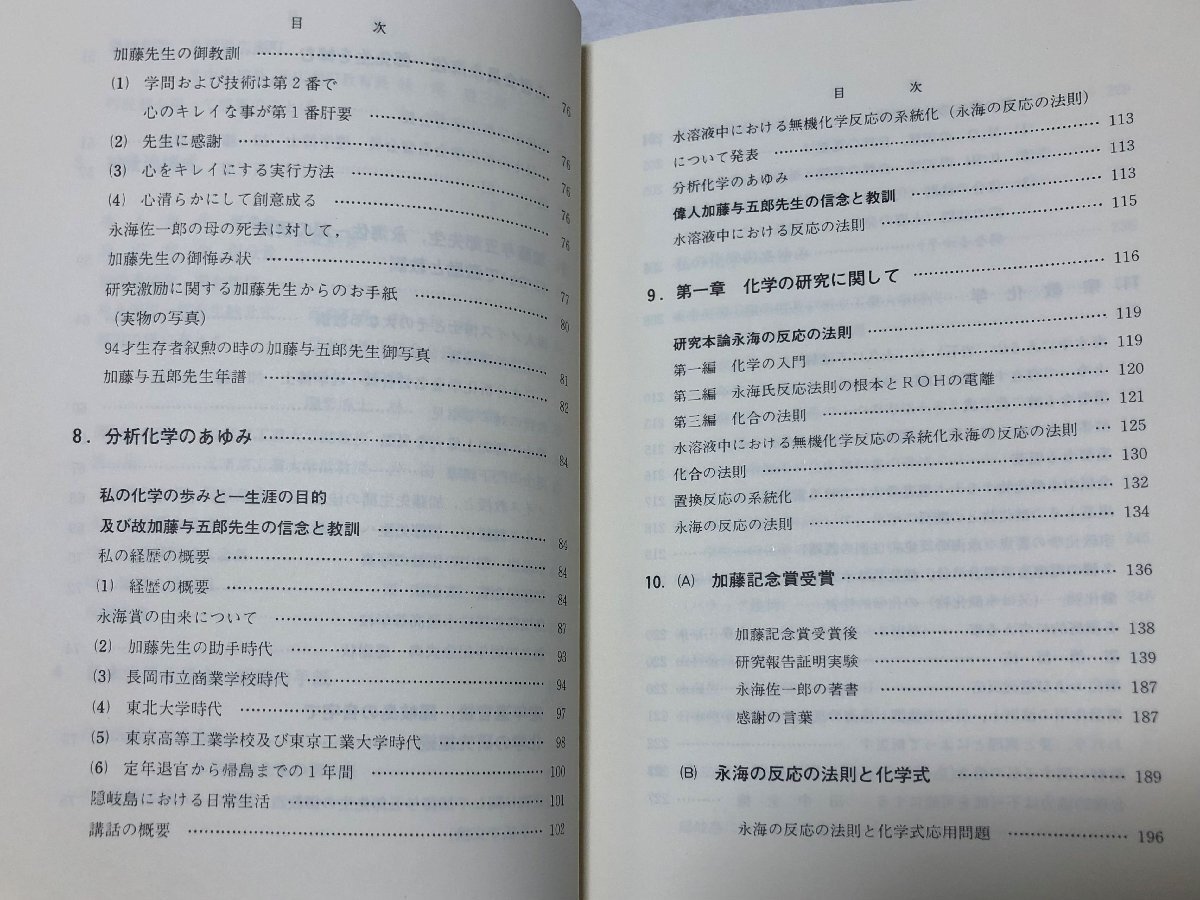 目 次
加藤先生の御教訓
(1) 学問および技術は第２番で
心のキレイな事が第１番肝要 76
(2) 先生に感謝 76
(3) 心をキレイにする実行方法 76
(4) 心清らかにして創意成る 76
永海佐一郎の母の死去に対して，
加藤先生の御悔み状 77
研究激励に関する加藤先生からのお手紙
(実物の写真) 80
94才生存者叙勲の時の加藤与五郎先生御写真 81
加藤与五郎先生年譜 82
8．分析化学のあゆみ 84
私の化学の歩みと一生涯の目的
及び故加藤与五郎先生の信念と教訓 84
私の経歴の概要 84
(1) 経歴の概要 84
永海賞の由来について 87
(2) 加藤先生の助手時代 93
(3) 長岡市立商業学校時代 94
(4) 東北大学時代 97
(5) 東京高等工業学校及び東京工業大学時代 98
(6) 定年退官から帰島までの１年間 100
隠岐島における日常生活 101
講話の概要 102
目 次
水溶液中における無機化学反応の系統化（永海の反応の法則）
について発表 113
分析化学のあゆみ 113
偉人加藤与五郎先生の信念と教訓 113
水溶液中における反応の法則 115
9．第一章 化学の研究に関して 116
研究本論永海の反応の法則 119
第一編 化学の入門 119
第二編 永海氏反応法則の根本とＲＯＨの電離 120
第三編 化合の法則 121
水溶液中における無機化学反応の系統化永海の反応の法則 125
化合の法則 130
置換反応の系統化 132
永海の反応の法則 134
10．(A) 加藤記念賞受賞 136
加藤記念賞受賞後 138
研究報告証明実験 139
永海佐一郎の著書 187
感謝の言葉 187
(B) 永海の反応の法則と化学式 189
永海の反応の法則と化学式応用問題 196